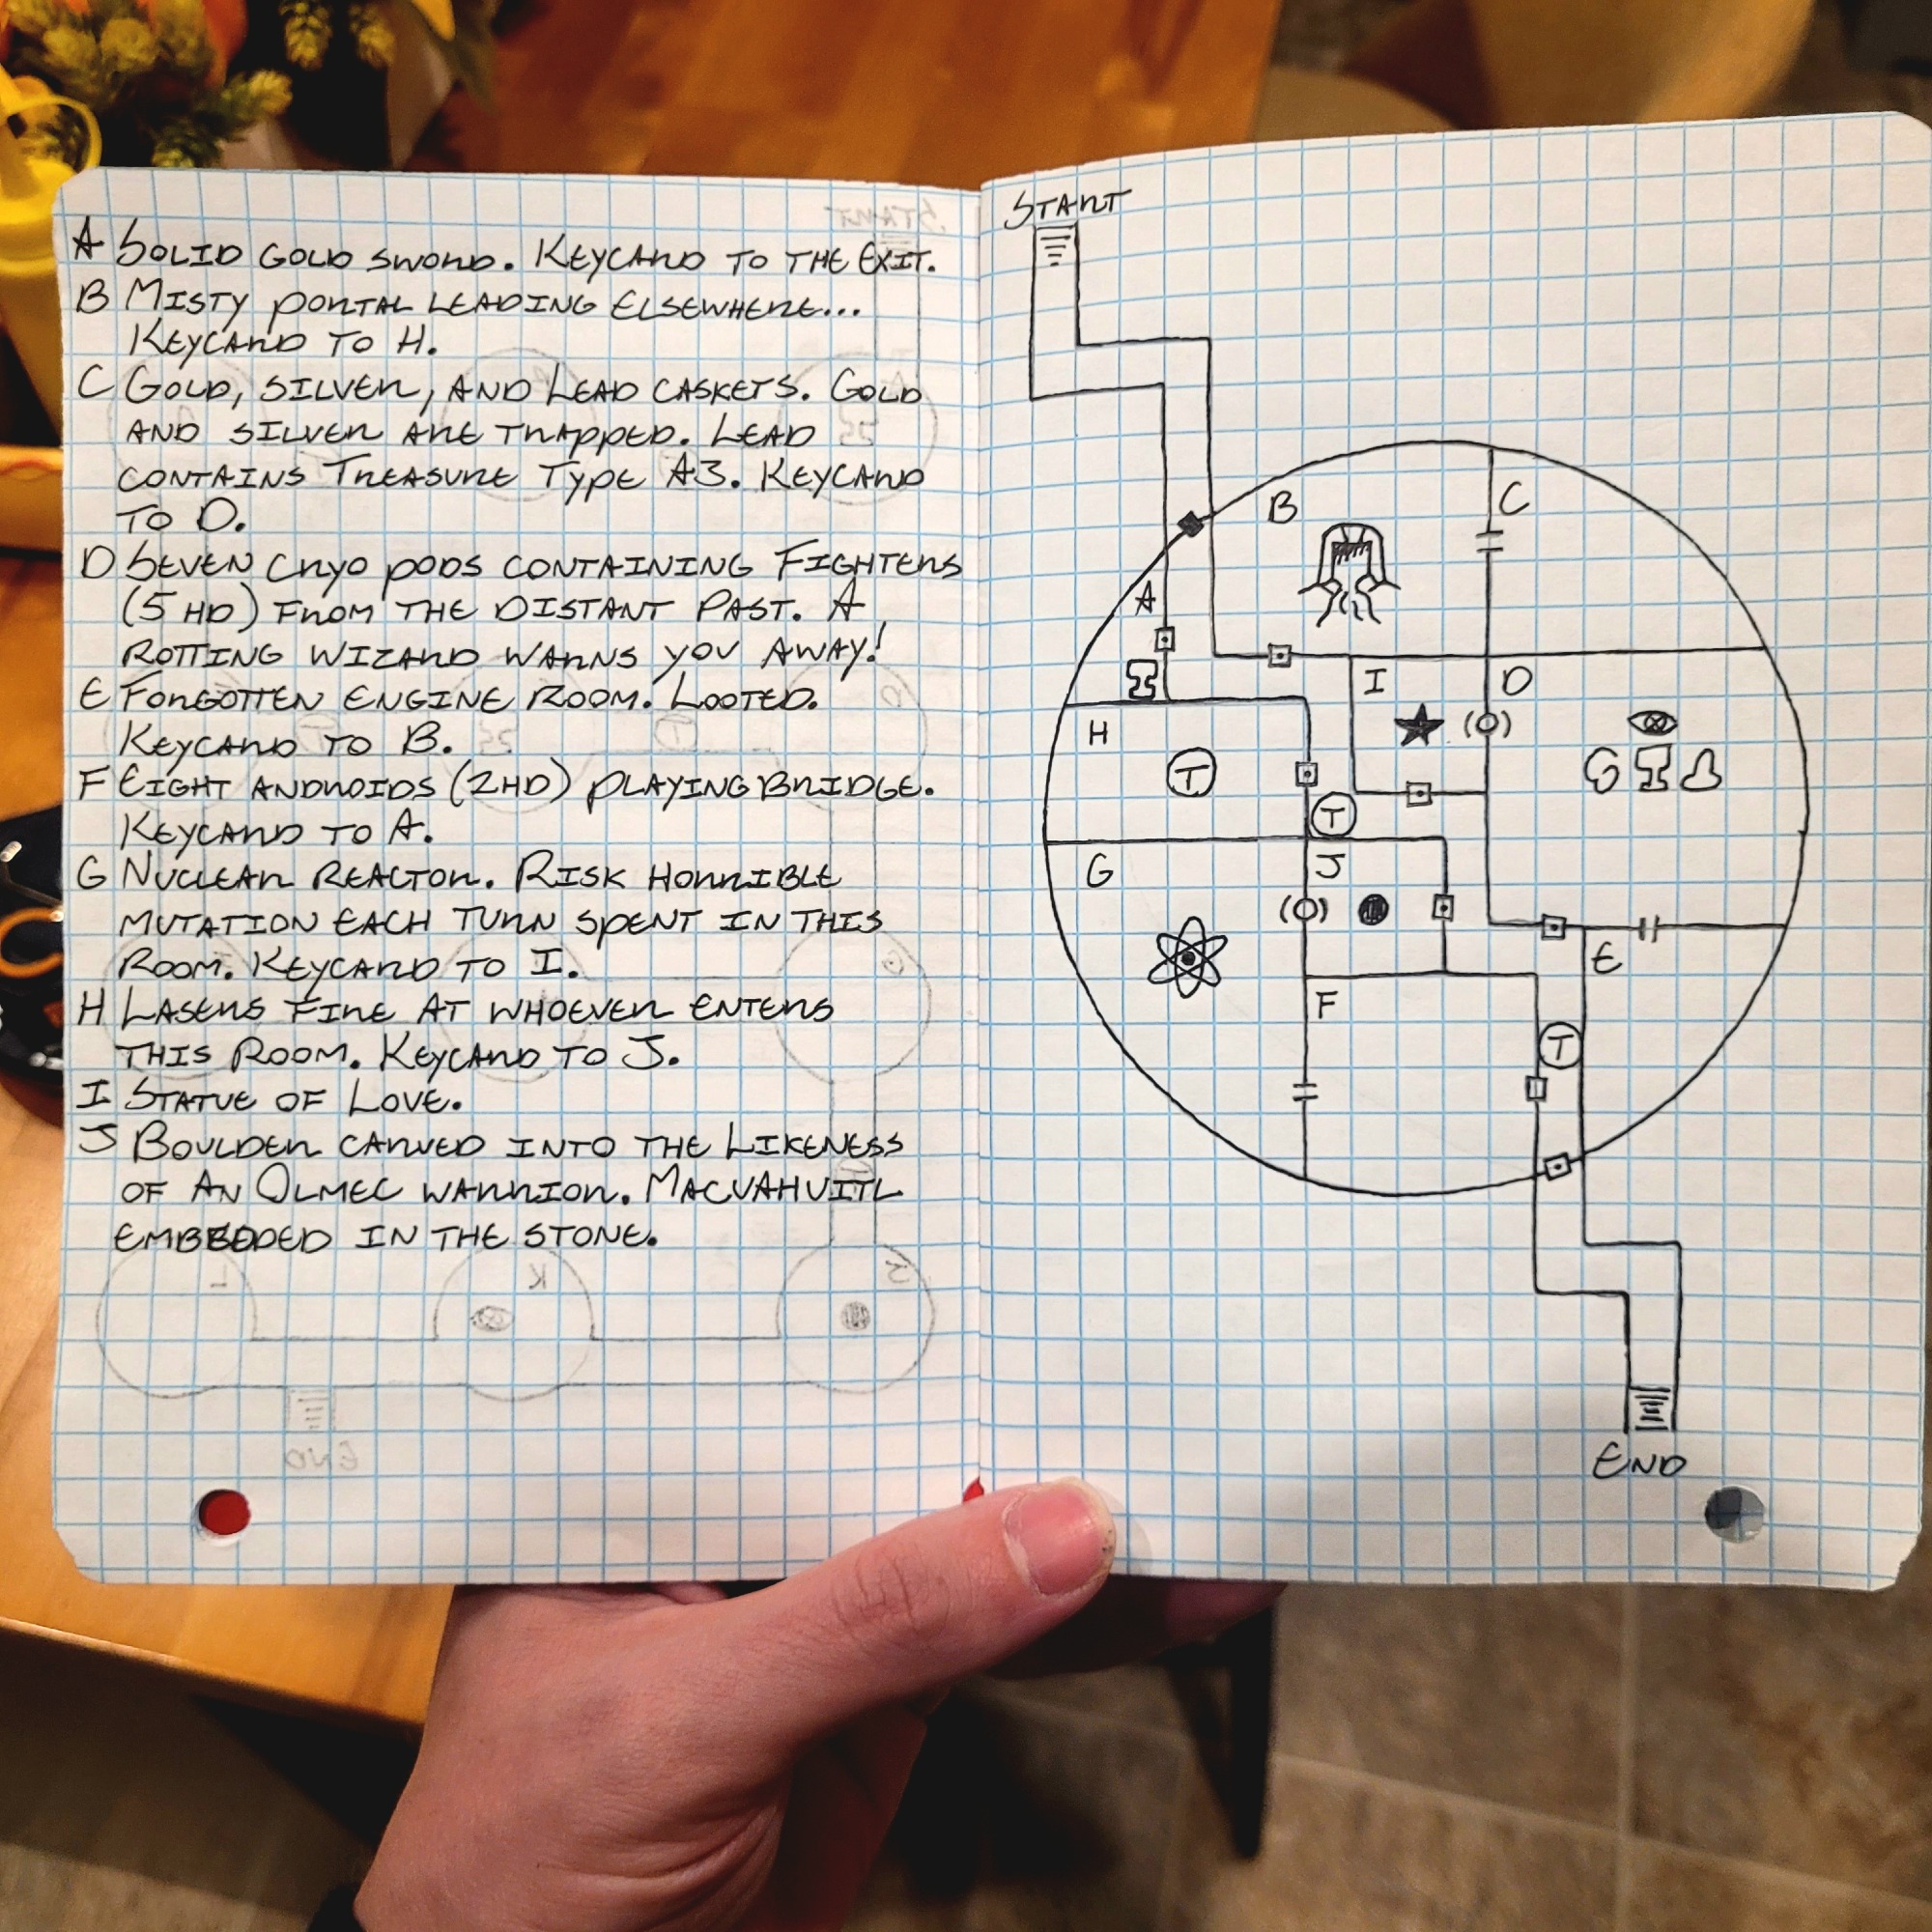 A SOLID GOLD SWORD. KEYCARD TO THE EXIT.
B MISTY PORTAL LEADING ELSEWHERE...
KEYCARD TO H.
C GOLD, SILVER, AND LEAD CASKETS. GOLD
AND SILVER ARE TRAPPED. LEAD
CONTAINS TREASURE TYPE A3. KEYCARD
TO D.
D SEVEN CRYO PODS CONTAINING FIGHTERS
(5 HD) FROM THE DISTANT PAST. A
ROTTING WIZARD WARNS YOU AWAY!
E FORGOTTEN ENGINE ROOM. LOOTED.
KEYCARD TO B.
F EIGHT ANDROIDS (2HD) PLAYING BRIDGE.
KEYCARD TO A.
G NUCLEAR REACTOR. RISK HORRIBLE
MUTATION EACH TURN SPENT IN THIS
ROOM. KEYCARD TO I.
H LASERS FIRE AT WHOEVER ENTERS
THIS ROOM. KEYCARD TO J.
I STATUE OF LOVE.
J BOULDER CARVED INTO THE LIKENESS
OF AN OLMEC WARRIOR. MACUAHUITL
EMBEDDED IN THE STONE.
START
B
C
A
I
D
H
T
T
G
J
E
F
T
END
L
K
J
END
START